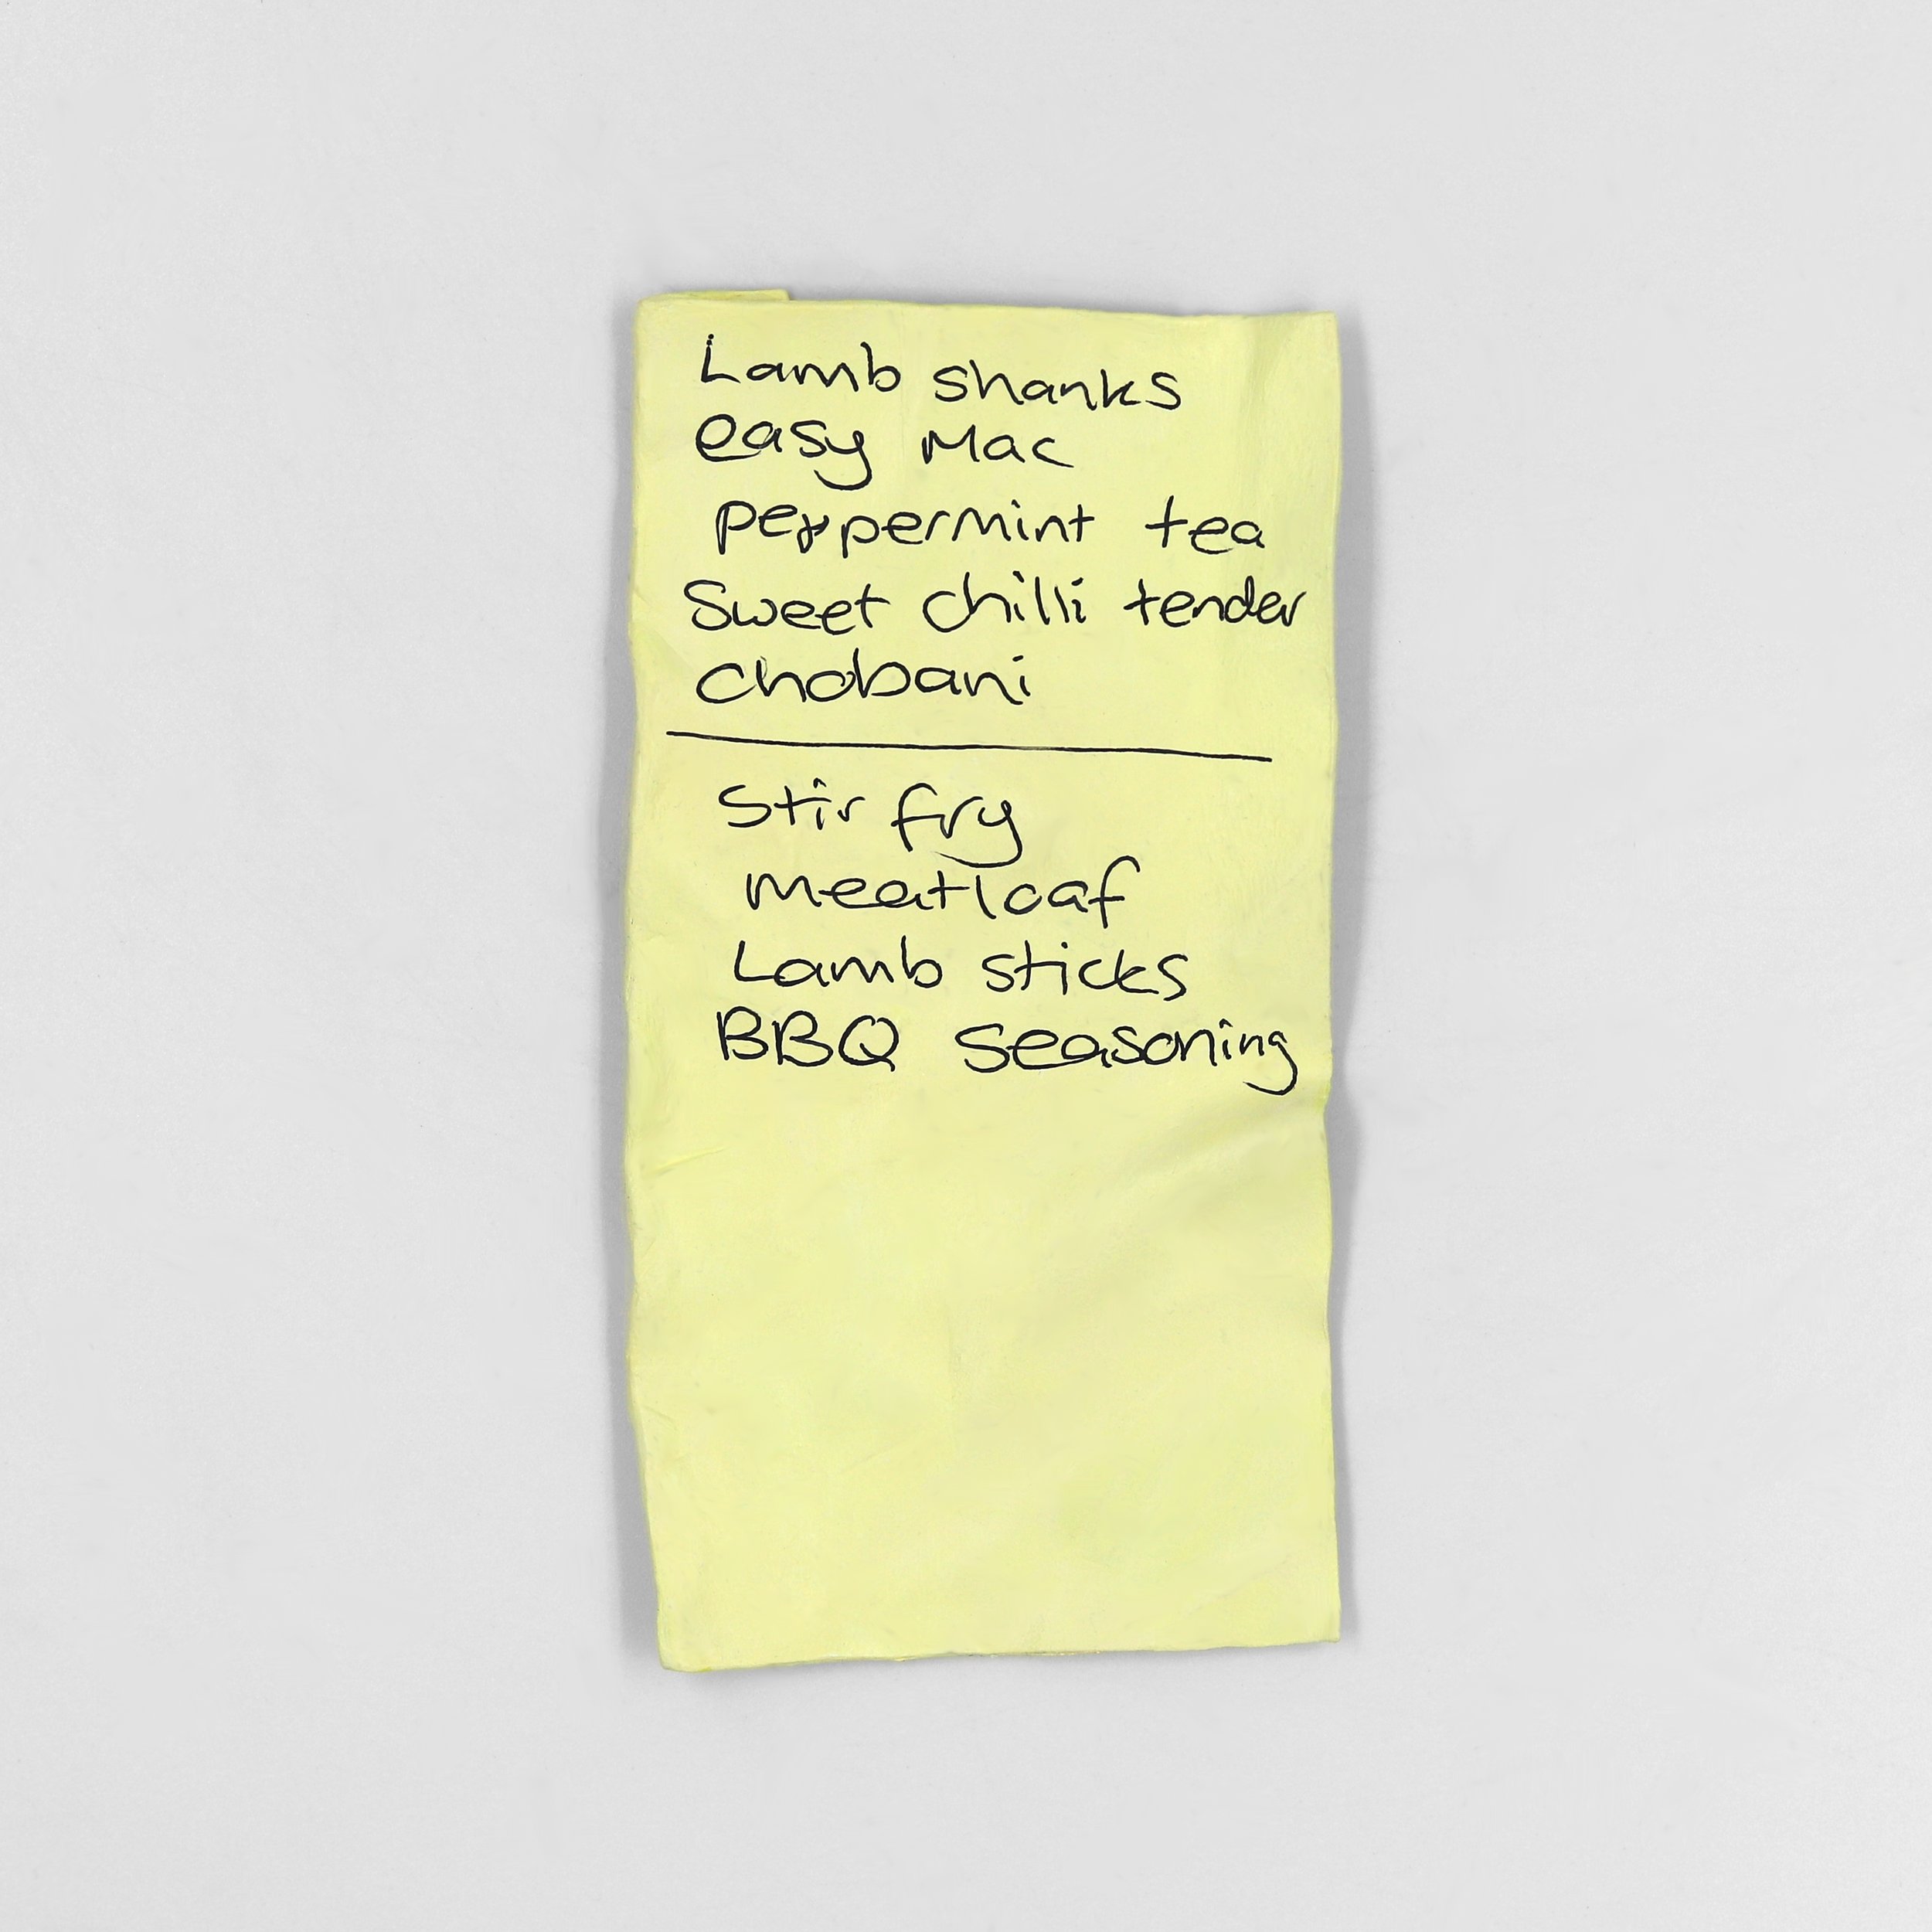 Lamb shanks
easy Mac
peppermint tea
Sweet chilli tender
chobani
Stir fry
meatloaf
Lamb sticks
BBQ seasoning